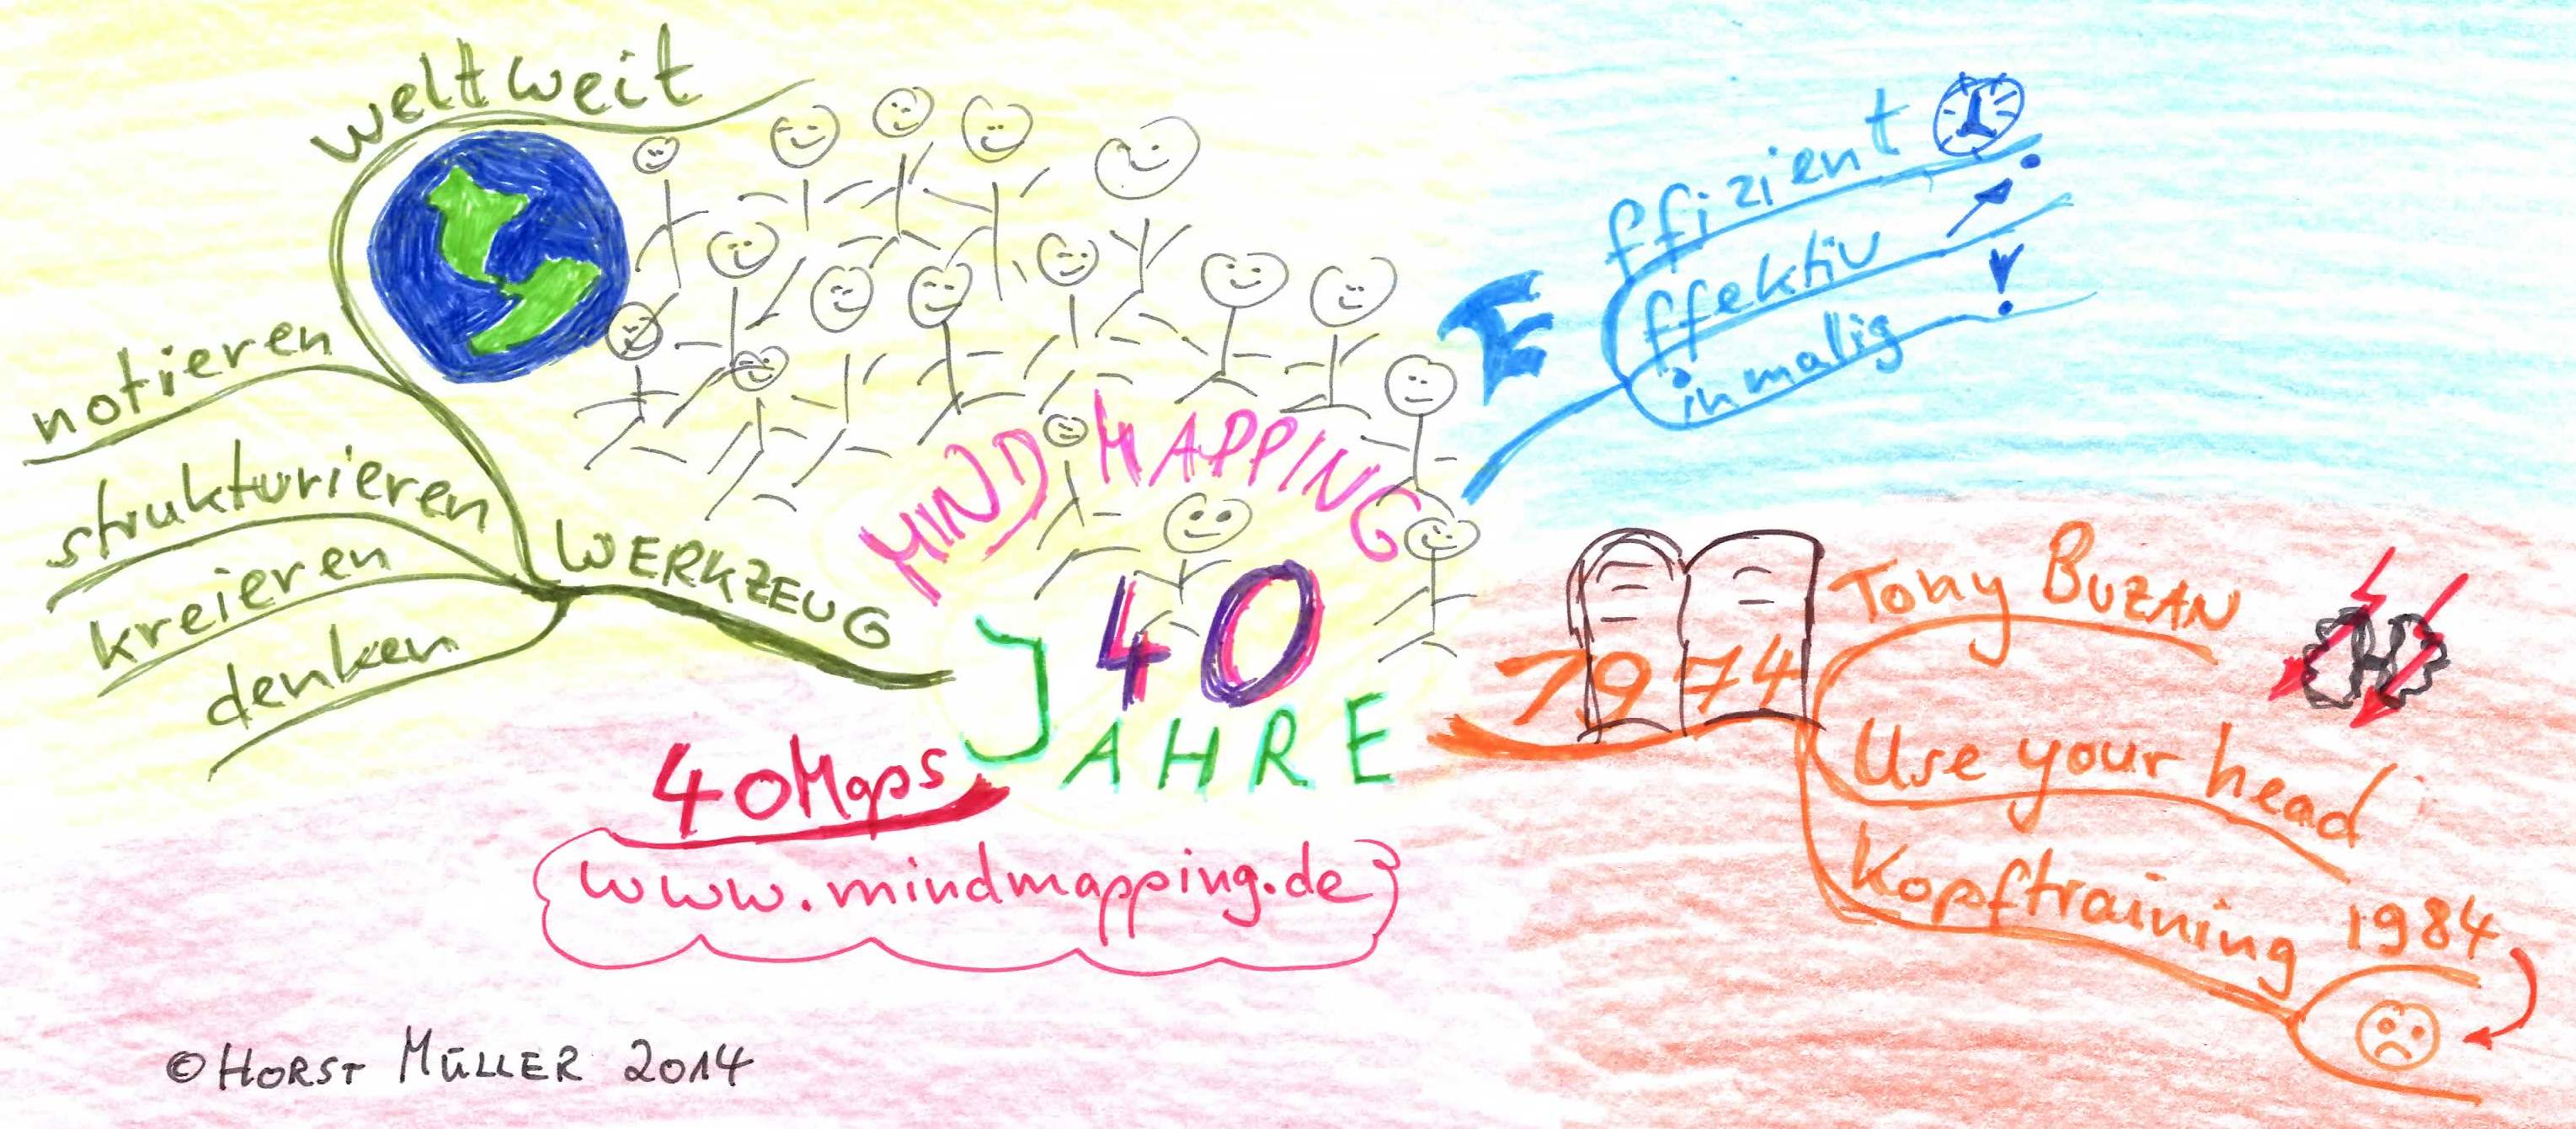 MIND MAPPING
40
JAHRE
weltweit
notieren
strukturieren
kreieren
denken
WERKZEUG
E
ffizient
ffektiv
inmalig
1974
Tony BUZAN
Use your head
Kopftraining
1984
40 Maps
www.mindmapping.de
© HORST MÜLLER 2014